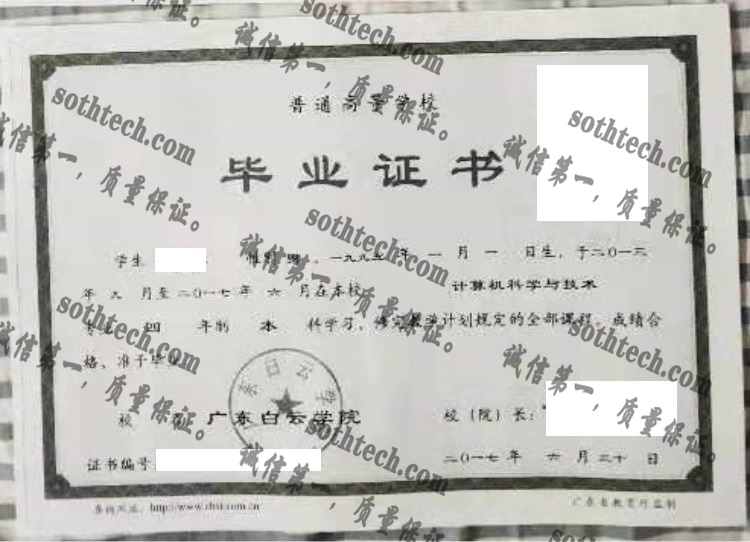 普通高等学校
毕业证书
学生 性别 男，一九九五年 一月 一 日生，于二〇一三
年 九 月至二〇一七年 六 月在本校 计算机科学与技术
专业 四 年制 本 科学习，修完教学计划规定的全部课程，成绩合
格，准予毕业。
东白云学
校 广东白云学院 校（院）长：
证书编号 二〇一七年 六 月三十 日
查询网址：http://www.chsi.com.cn 广东省教育厅监制
sothtech.com
诚信第一，质量保证。
sothtech.com
诚信第一，质量保证。
sothtech.com
诚信第一，质量保证。
sothtech.com
诚信第一，质量保证。
sothtech.com
诚信第一，质量保证。
sothtech.com
诚信第一，质量保证。
sothtech.com
诚信第一，质量保证。
sothtech.com
诚信第一，质量保证。